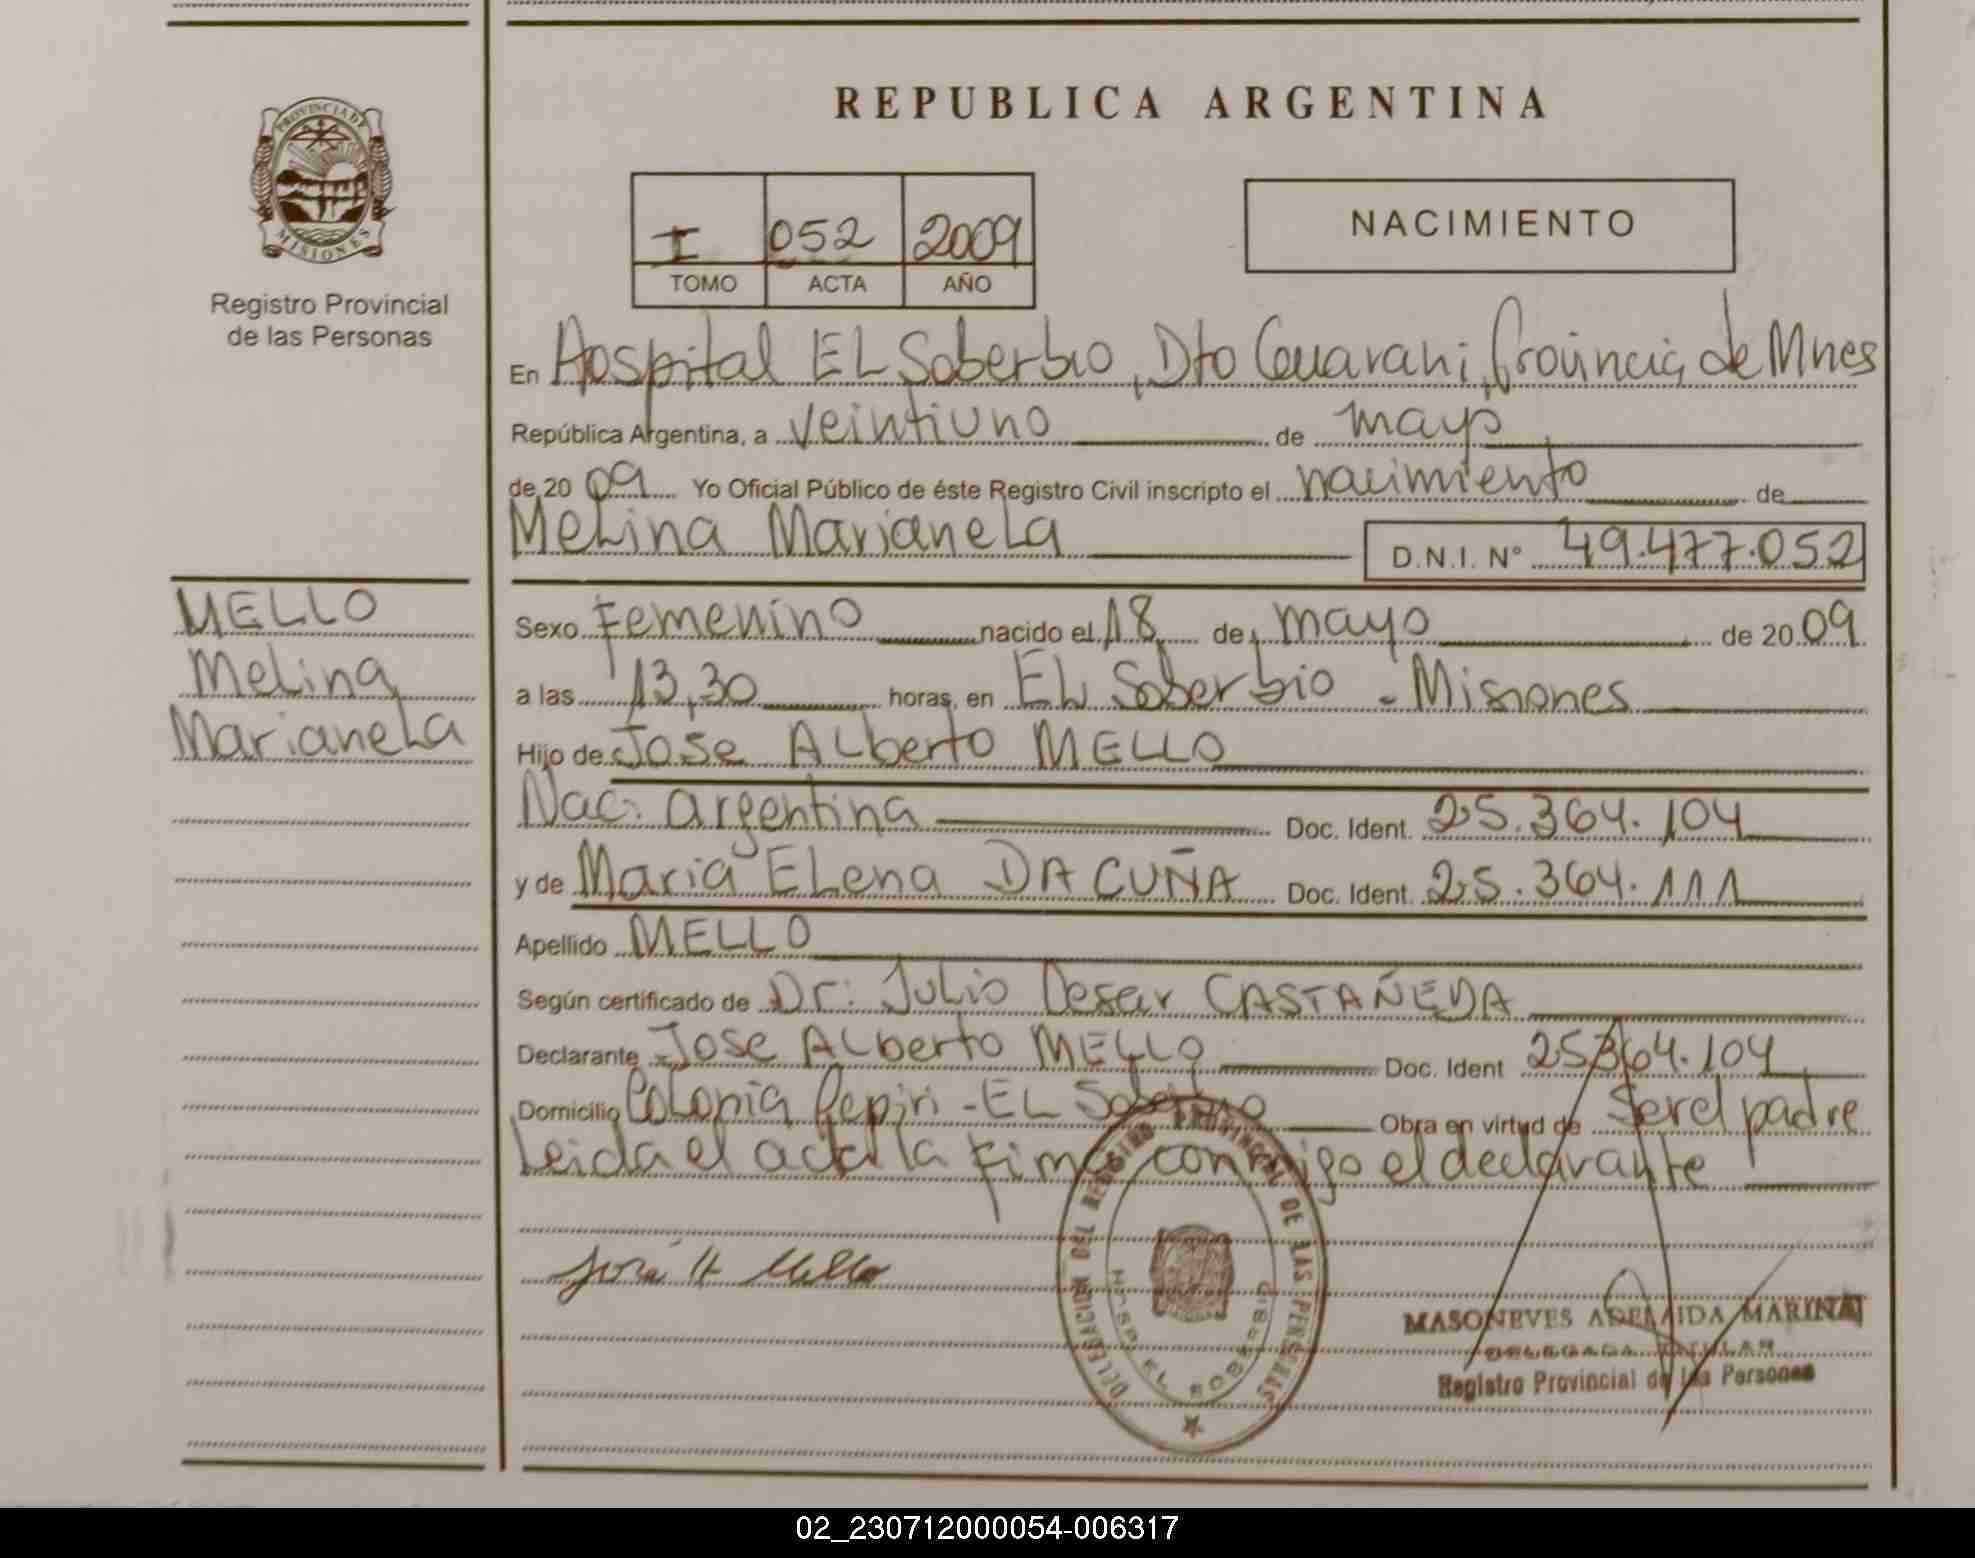 PROVINCIA DE
MISIONES
Registro Provincial
de las Personas
REPUBLICA ARGENTINA
I 052 2009
TOMO ACTA AÑO
NACIMIENTO
En Hospital EL Soberbio, Dto Guarani, Provincia de Mnes
República Argentina, a veintiuno de mayo
de 2009 Yo Oficial Público de éste Registro Civil inscripto el nacimiento de
Melina Marianela D.N.I. Nº 49.477.052
MELLO
Melina
Marianela
Sexo Femenino nacido el 18 de mayo de 2009
a las 13,30 horas, en EL Soberbio - Misiones
Hijo de Jose Alberto MELLO
Nac. argentina Doc. Ident. 25.364.104
y de Maria Elena DA CUÑA Doc. Ident. 25.364.111
Apellido MELLO
Según certificado de Dr. Julio Cesar CASTAÑEDA
Declarante Jose Alberto MELLO Doc. Ident 25364.104
Domicilio Colonia Pepiri - EL Soberbio Obra en virtud de ser el padre
Leida el acta la firma conmigo el declarante
José A Mello
DELEGACION DEL REGISTRO PROVINCIAL DE LAS PERSONAS
HOSP. EL SOBERBIO
MASONEVES ADELAIDA MARINA
DELEGADA TITULAR
Registro Provincial de las Personas
02_230712000054-006317